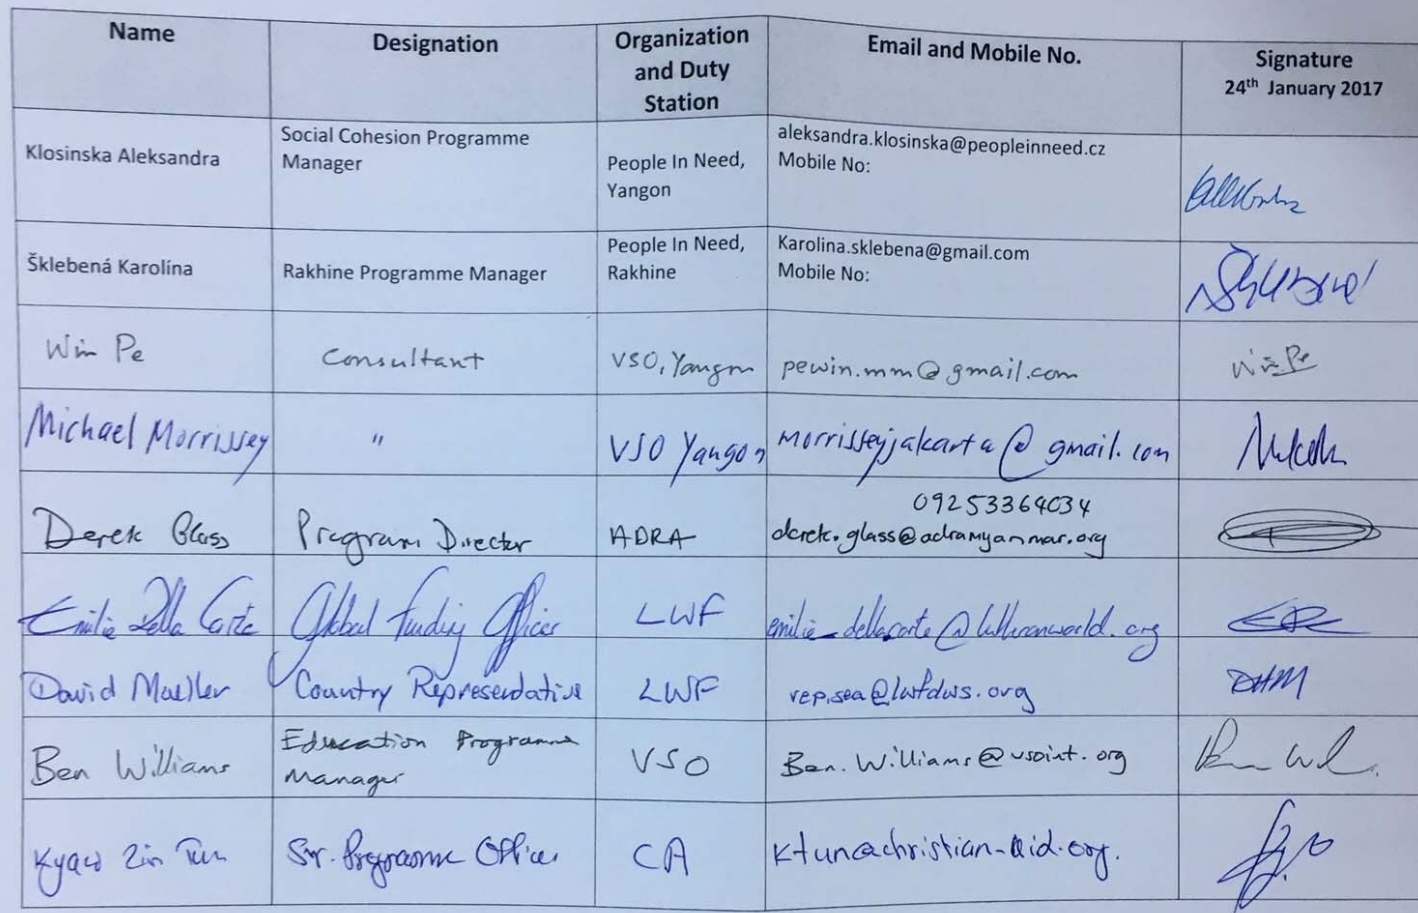 Name
Designation
Organization
and Duty
Station
Email and Mobile No.
Signature
24th January 2017
Klosinska Aleksandra
Social Cohesion Programme
Manager
People In Need,
Yangon
aleksandra.klosinska@peopleinneed.cz
Mobile No:
Šklebená Karolína
Rakhine Programme Manager
People In Need,
Rakhine
Karolina.sklebena@gmail.com
Mobile No:
Win Pe
Consultant
VSO, Yangon
pewin.mm@gmail.com
Win Pe
Michael Morrissey
"
VSO Yangon
morrisseyjakarta@gmail.com
Derek Glass
Program Director
ADRA
09253364034
derek.glass@adramyanmar.org
Emilie Della Corte
Global Funding Officer
LWF
emilie_dellacorte@lutheranworld.org
David Mueller
Country Representative
LWF
rep.sea@lwfdws.org
DHM
Ben Williams
Education Programme
Manager
VSO
Ben.Williams@vsoint.org
Kyaw Zin Tun
Sr. Programme Officer
CA
ktun@christian-aid.org.